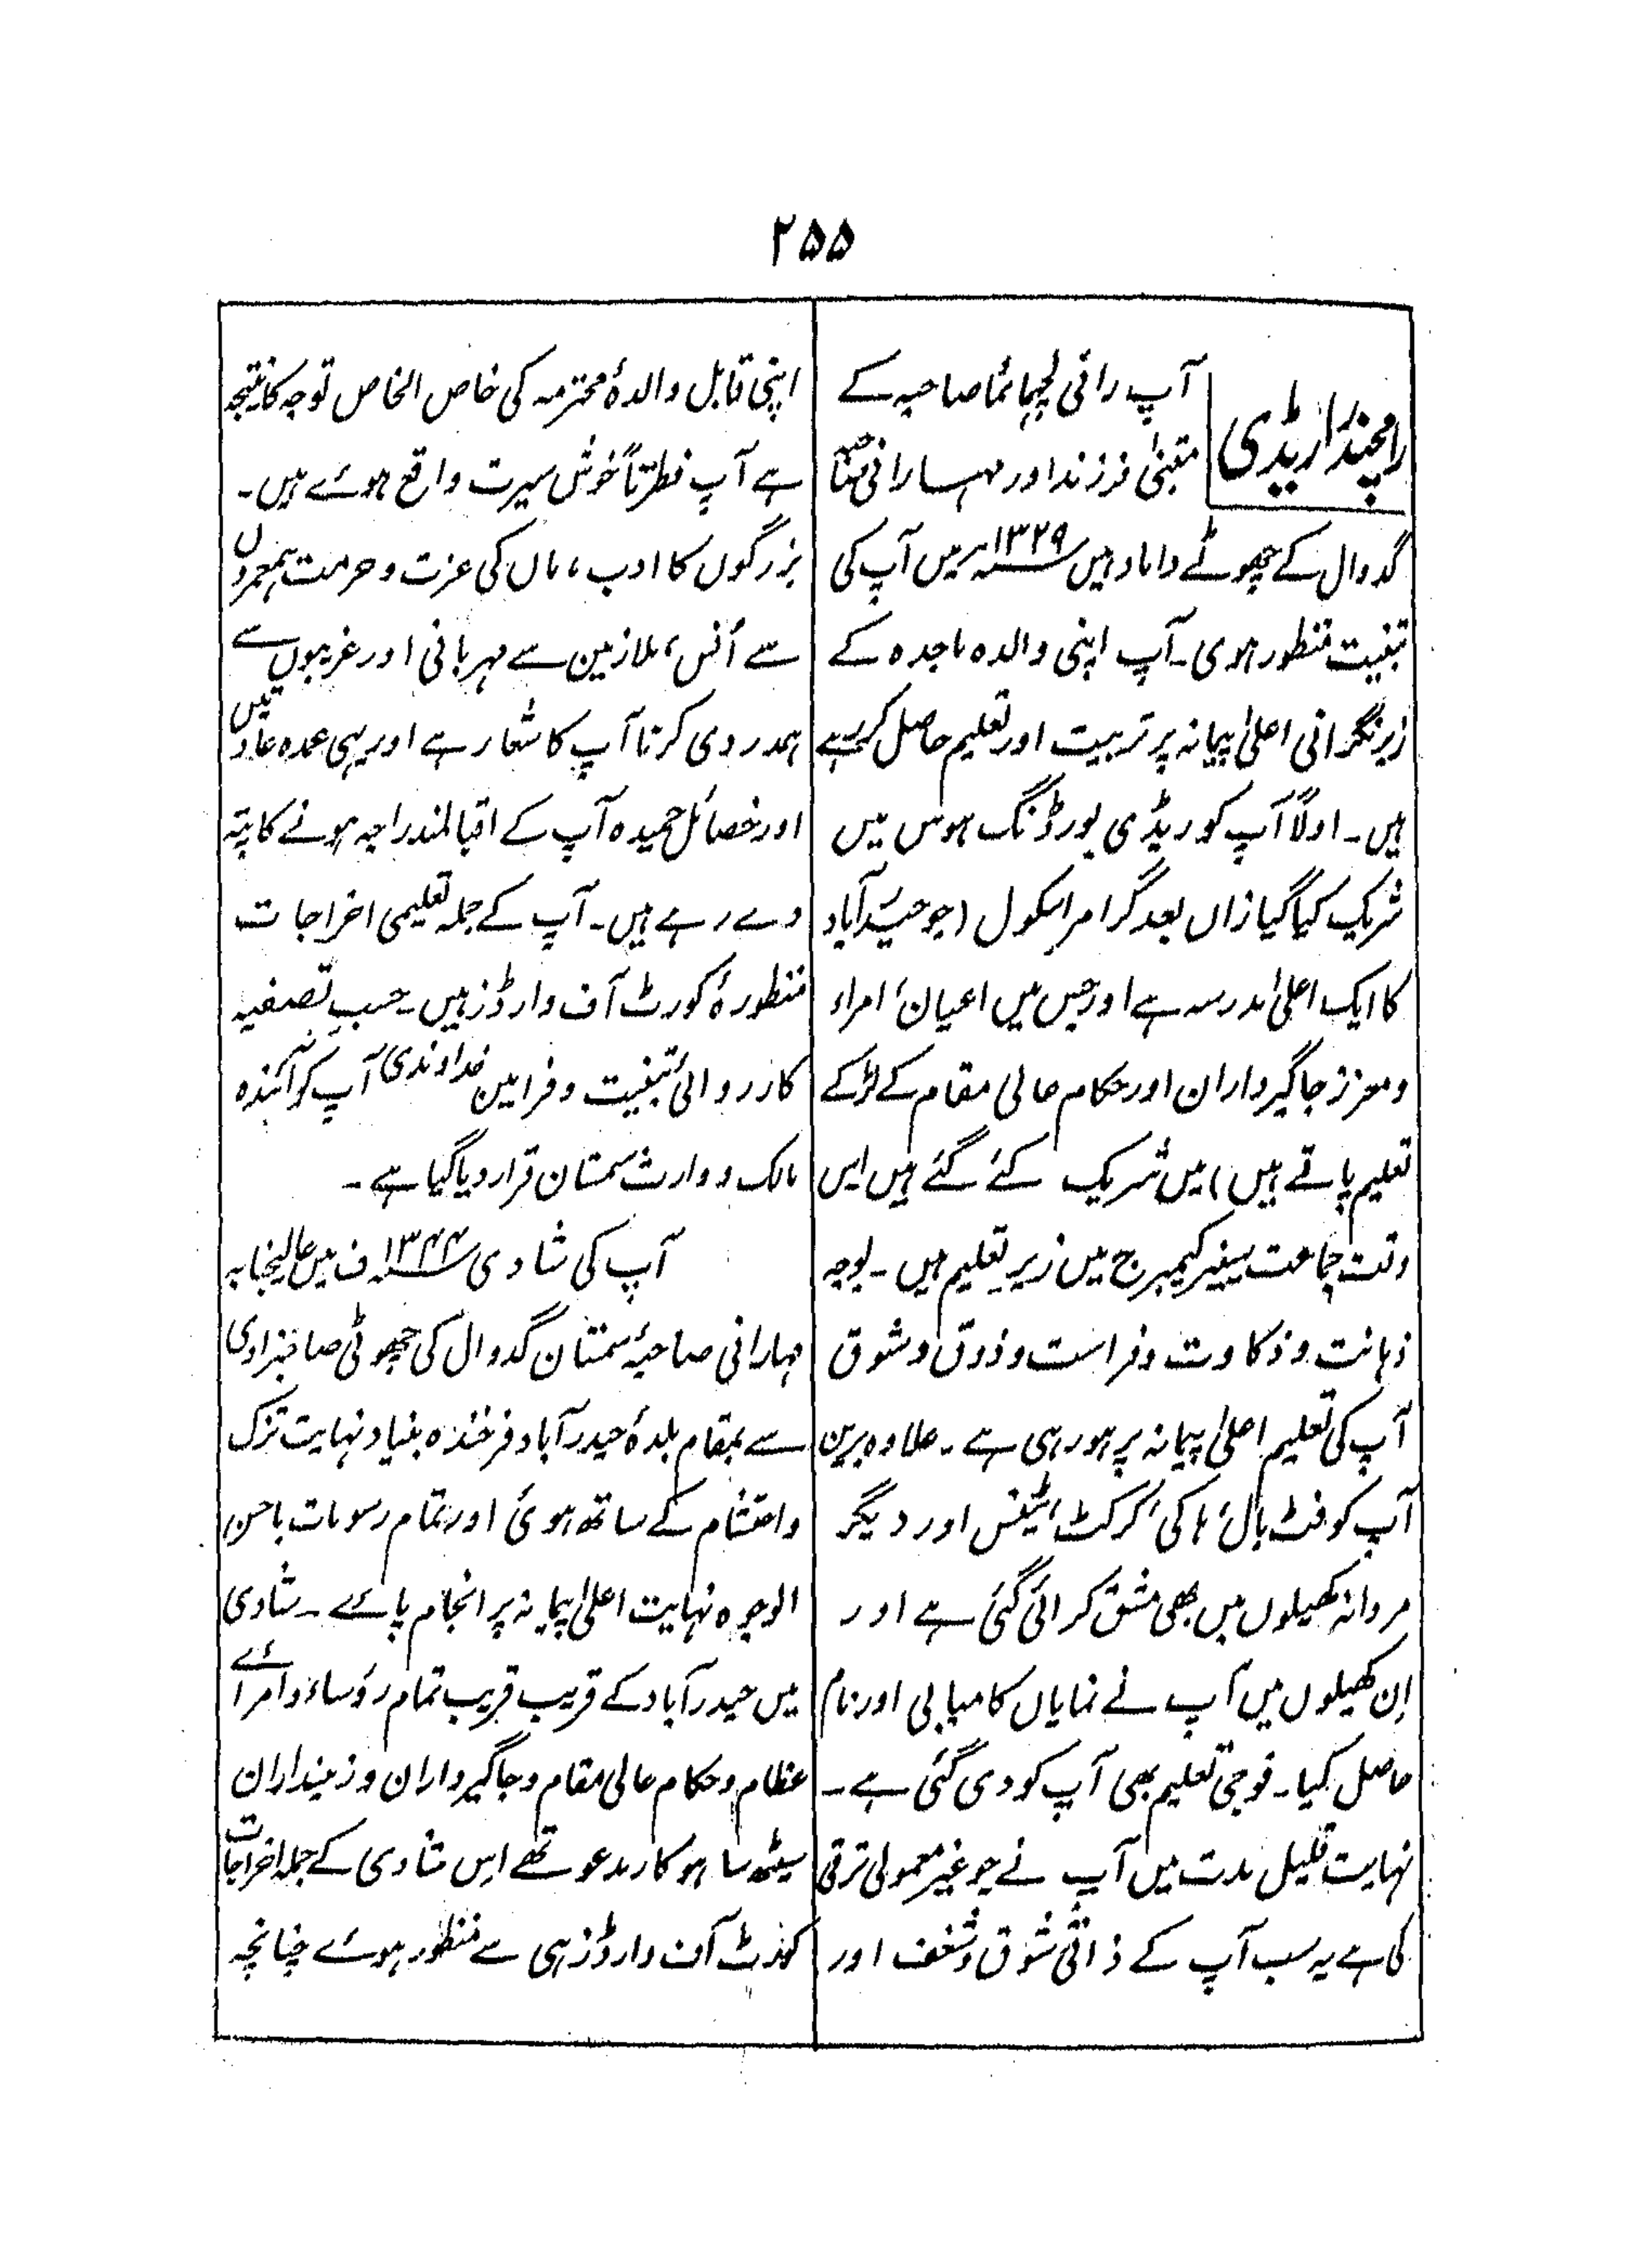 ۲۵۵
رامچندرا ریڈی
آپ رانی لچھمائما صاحبہ کے
متبنیٰ فرزند اور مہارانی صاحبہ
گدوال کے چھوٹے داماد ہیں ۱۳۲۹؁ میں آپ کی
تبنیت منظور ہوی۔ آپ اپنی والدہ ماجدہ کے
زیرنگرانی اعلیٰ پیمانہ پر تربیت اور تعلیم حاصل کررہے
ہیں۔ اولاً آپ کو ریڈی بورڈنگ ہوس میں
شریک کیا گیا ازاں بعد گرامر اسکول (جو حیدرآباد
کا ایک اعلیٰ مدرسہ ہے اور جس میں اعیان، امراء
ومعزز جاگیرداران اور حکام عالی مقام کے لڑکے
تعلیم پاتے ہیں) میں شریک کئے گئے ہیں اس
وقت جماعت سینیر کیمبرج میں زیر تعلیم ہیں۔ بوجہ
ذہانت و ذکاوت و فراست و ذوق و شوق
آپ کی تعلیم اعلیٰ پیمانہ پر ہورہی ہے۔ علاوہ بریں
آپ کو فٹ بال، ہاکی، کرکٹ، ٹینس اور دیگر
مردانہ کھیلوں میں بھی مشق کرائی گئی ہے اور
اِن کھیلوں میں آپ نے نمایاں کامیابی اور نام
حاصل کیا۔ فوجی تعلیم بھی آپ کو دی گئی ہے۔
نہایت قلیل مدت میں آپ نے جو غیر معمولی ترقی
کی ہے یہ سب آپ کے ذاتی شوق و شغف اور
اپنی قابل والدۂ محترمہ کی خاص الخاص توجہ کا نتیجہ
ہے آپ فطرتاً خوش سیرت واقع ہوئے ہیں۔
بزرگوں کا ادب، ماں کی عزت و حرمت ہمعمروں
سے اُنس، ملازمین سے مہربانی اور غریبوں سے
ہمدردی کرنا آپ کا شعار ہے اور یہی عمدہ عادتیں
اور خصائل حمیدہ آپ کے اقبالمند راجہ ہونے کا پتہ
دے رہے ہیں۔ آپ کے جملہ تعلیمی اخراجات
منظورۂ کورٹ آف وارڈز ہیں۔ حسب تصفیہ
کارروائی تبنیت و فرامین خداوندی آپ کو آئندہ
مالک و وارث سمستان قرار دیا گیا ہے۔
آپ کی شادی ۱۳۴۴؁ف میں عالیجنابہ
مہارانی صاحبۂ سمستان گدوال کی چھوٹی صاحبزادی
سے بمقام بلدۂ حیدرآباد فرخندہ بنیاد نہایت تزک
واحتشام کے ساتھ ہوئی اور تمام رسومات باحسن
الوجوہ نہایت اعلیٰ پیمانہ پر انجام پائے۔ شادی
میں حیدرآباد کے قریب قریب تمام رؤساء و امرائے
عظام و حکام عالی مقام و جاگیرداران و زمینداران
سیٹھ ساہوکار مدعو تھے اِس شادی کے جملہ اخراجات
کورٹ آف وارڈز ہی سے منظور ہوئے چنانچہ